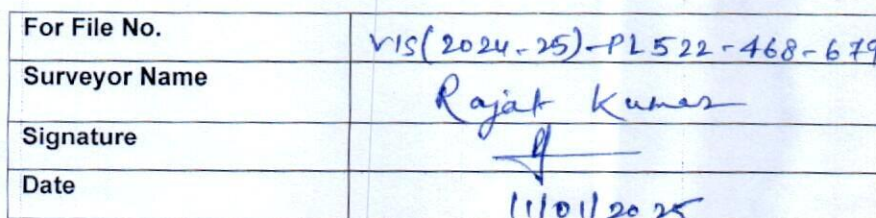 For File No. VIS(2024-25)-PL522-468-679
Surveyor Name Rajat Kumar
Signature
Date 11/01/2025